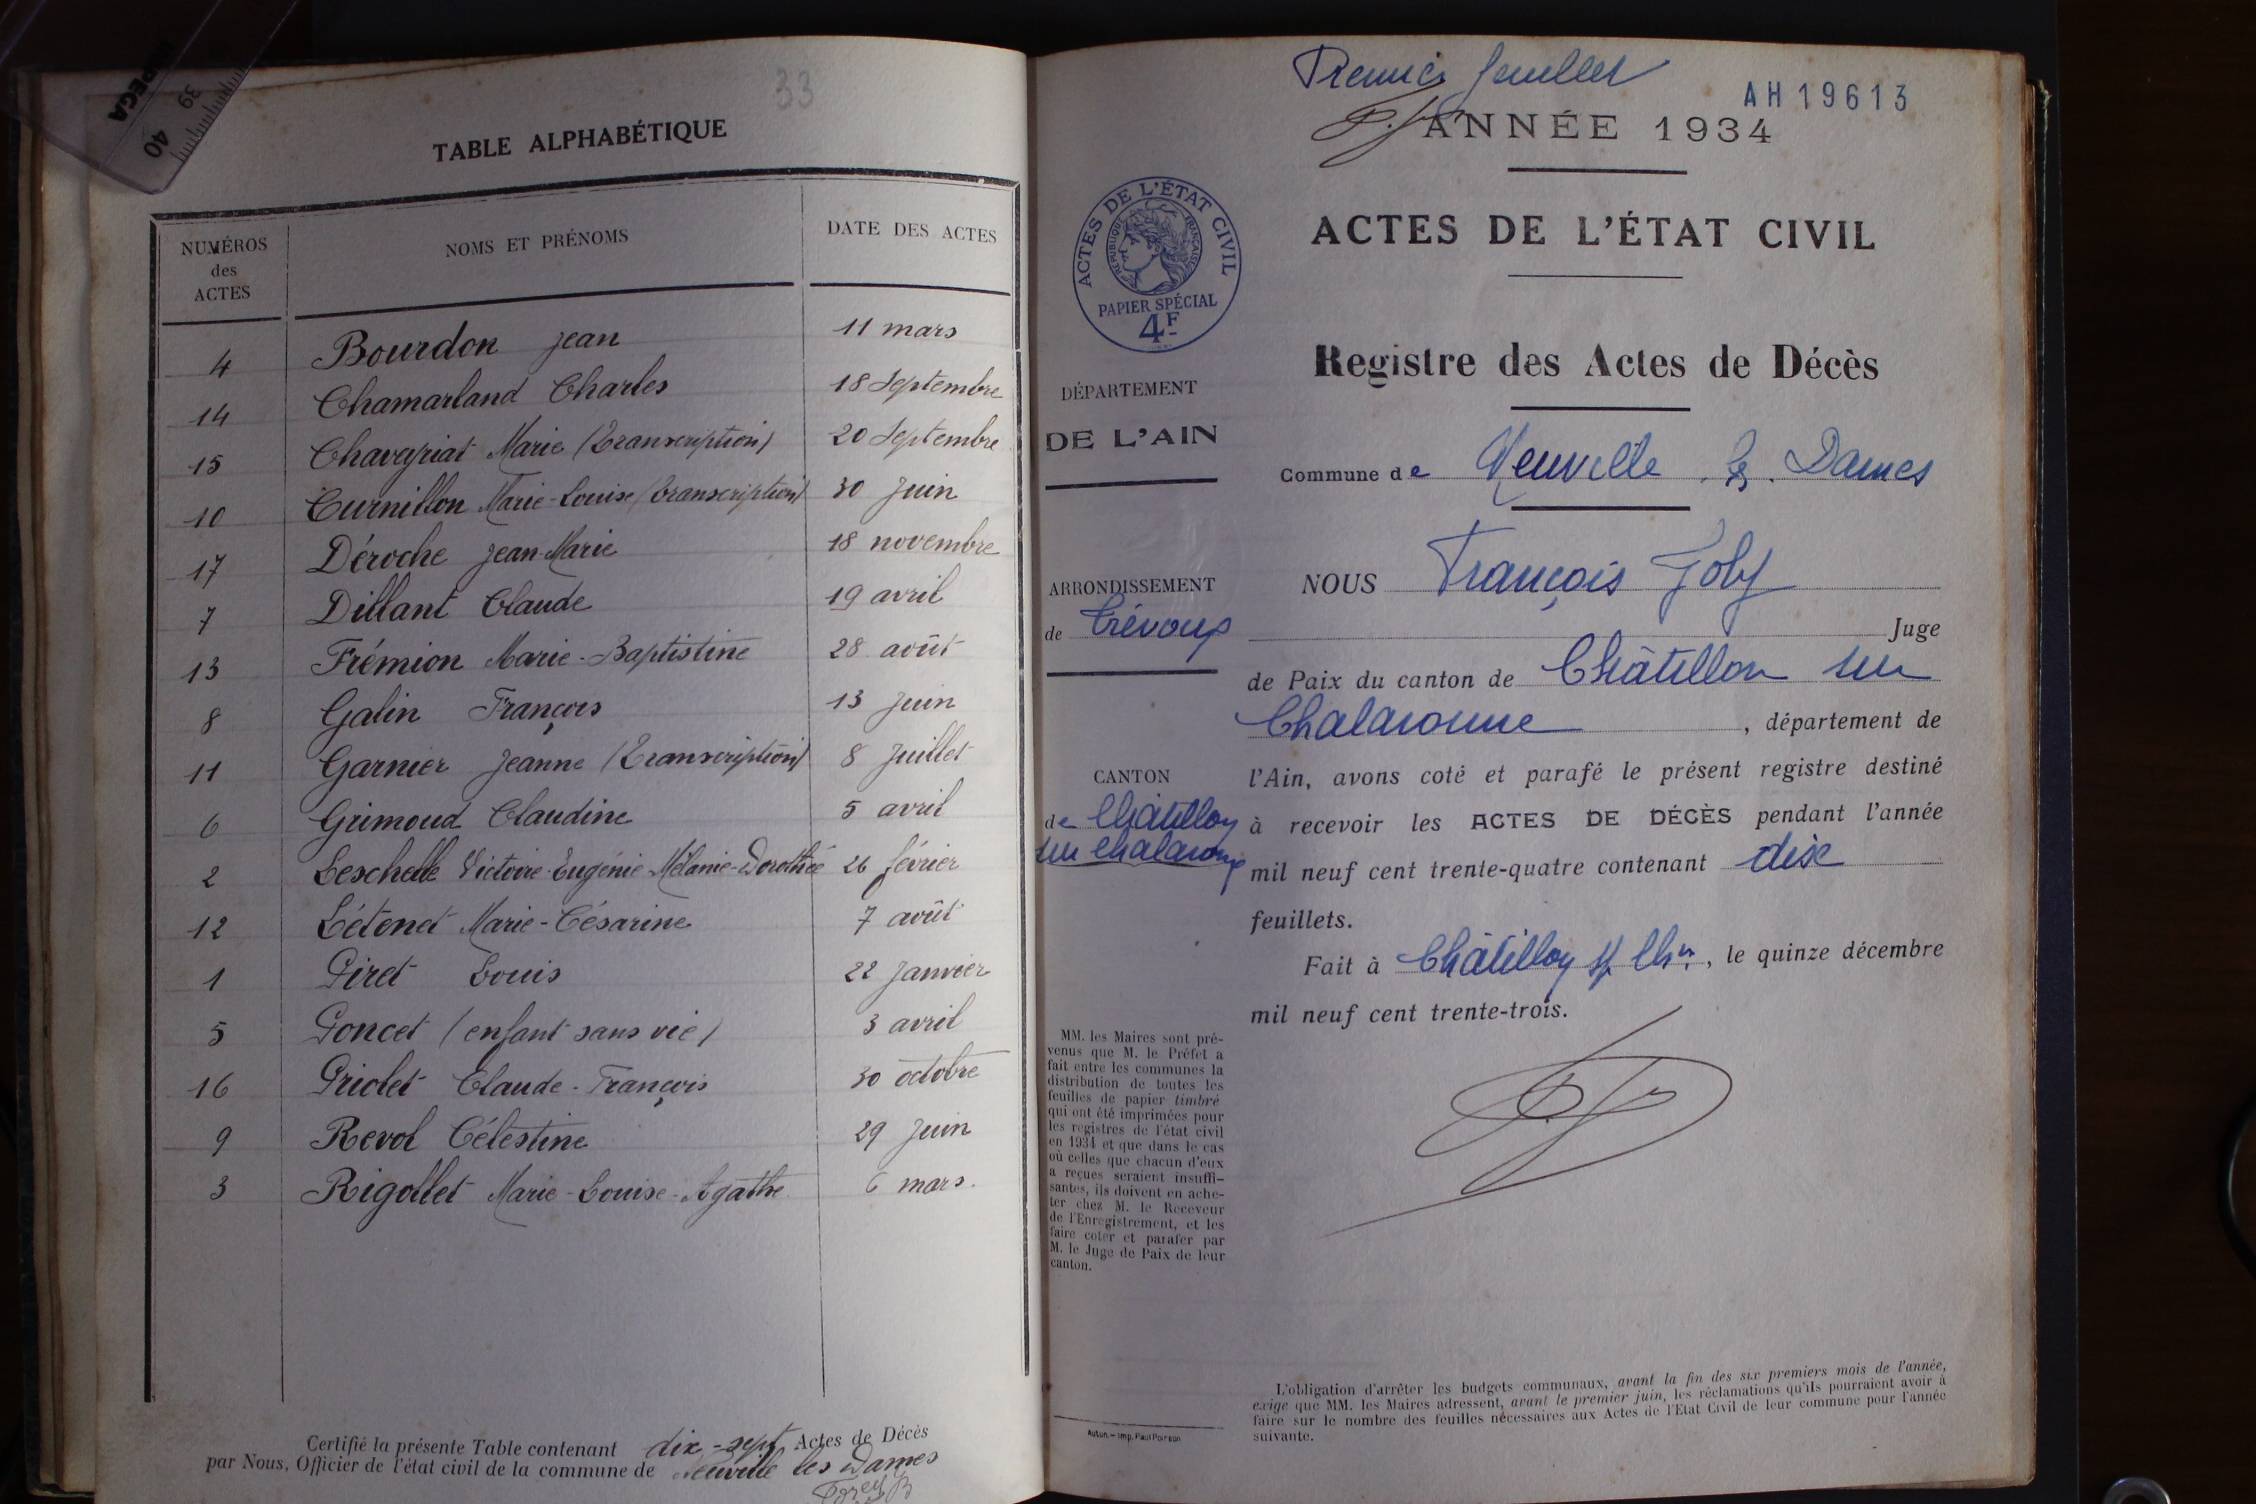 OMEGA
39
40
33
TABLE ALPHABÉTIQUE
NUMÉROS des ACTES NOMS ET PRÉNOMS DATE DES ACTES
4 Bourdon Jean 11 mars
14 Chamarland Charles 18 Septembre
15 Chavagriat Marie (Transcription) 20 Septembre
10 Curnillon Marie-Louise (transcription) 30 Juin
17 Déroche Jean-Marie 18 novembre
7 Dillant Claude 19 avril
13 Frémion Marie-Baptistine 28 août
8 Galin François 13 Juin
11 Garnier Jeanne (Transcription) 8 Juillet
6 Grimoud Claudine 5 avril
2 Leschelle Victoire-Eugénie-Mélanie-Dorothée 26 février
12 Létenet Marie-Césarine 7 août
1 Piret Louis 22 Janvier
5 Poncet (enfant sans vie) 3 avril
16 Priolet Claude-François 30 octobre
9 Revol Célestine 29 Juin
3 Rigollet Marie-Louise-Agathe 6 mars.
Certifié la présente Table contenant dix-sept Actes de Décès
par Nous, Officier de l'état civil de la commune de Neuville les Dames
Premier feuillet
AH19613
ANNÉE 1934
ACTES DE L'ÉTAT CIVIL
RÉPUBLIQUE FRANÇAISE
PAPIER SPÉCIAL
4F
ACTES DE L'ÉTAT CIVIL
Registre des Actes de Décès
DÉPARTEMENT
DE L'AIN
Commune de Neuville les Dames
ARRONDISSEMENT
de Trévoux
CANTON
de Châtillon
sur Chalaronne
NOUS François Joly
Juge
de Paix du canton de Châtillon sur
Chalaronne, département de
l'Ain, avons coté et parafé le présent registre destiné
à recevoir les ACTES DE DÉCÈS pendant l'année
mil neuf cent trente-quatre contenant dix
feuillets.
Fait à Châtillon s/ Chne, le quinze décembre
mil neuf cent trente-trois.
MM. les Maires sont pré-
venus que M. le Préfet a
fait entre les communes la
distribution de toutes les
feuilles de papier timbré
qui ont été imprimées pour
les registres de l'état civil
en 1934 et que dans le cas
où celles que chacun d'eux
a reçues seraient insuffi-
santes, ils doivent en ache-
ter chez M. le Receveur
de l'Enregistrement, et les
faire coter et parafer par
M. le Juge de Paix de leur
canton.
Autun. — Imp. Paul Poirson
L'obligation d'arrêter les budgets communaux, avant la fin des six premiers mois de l'année,
exige que MM. les Maires adressent, avant le premier juin, les réclamations qu'ils pourraient avoir à
faire sur le nombre des feuilles nécessaires aux Actes de l'État Civil de leur commune pour l'année
suivante.